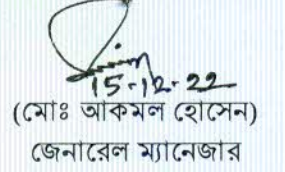 15-12-22
(মোঃ আকমল হোসেন)
জেনারেল ম্যানেজার